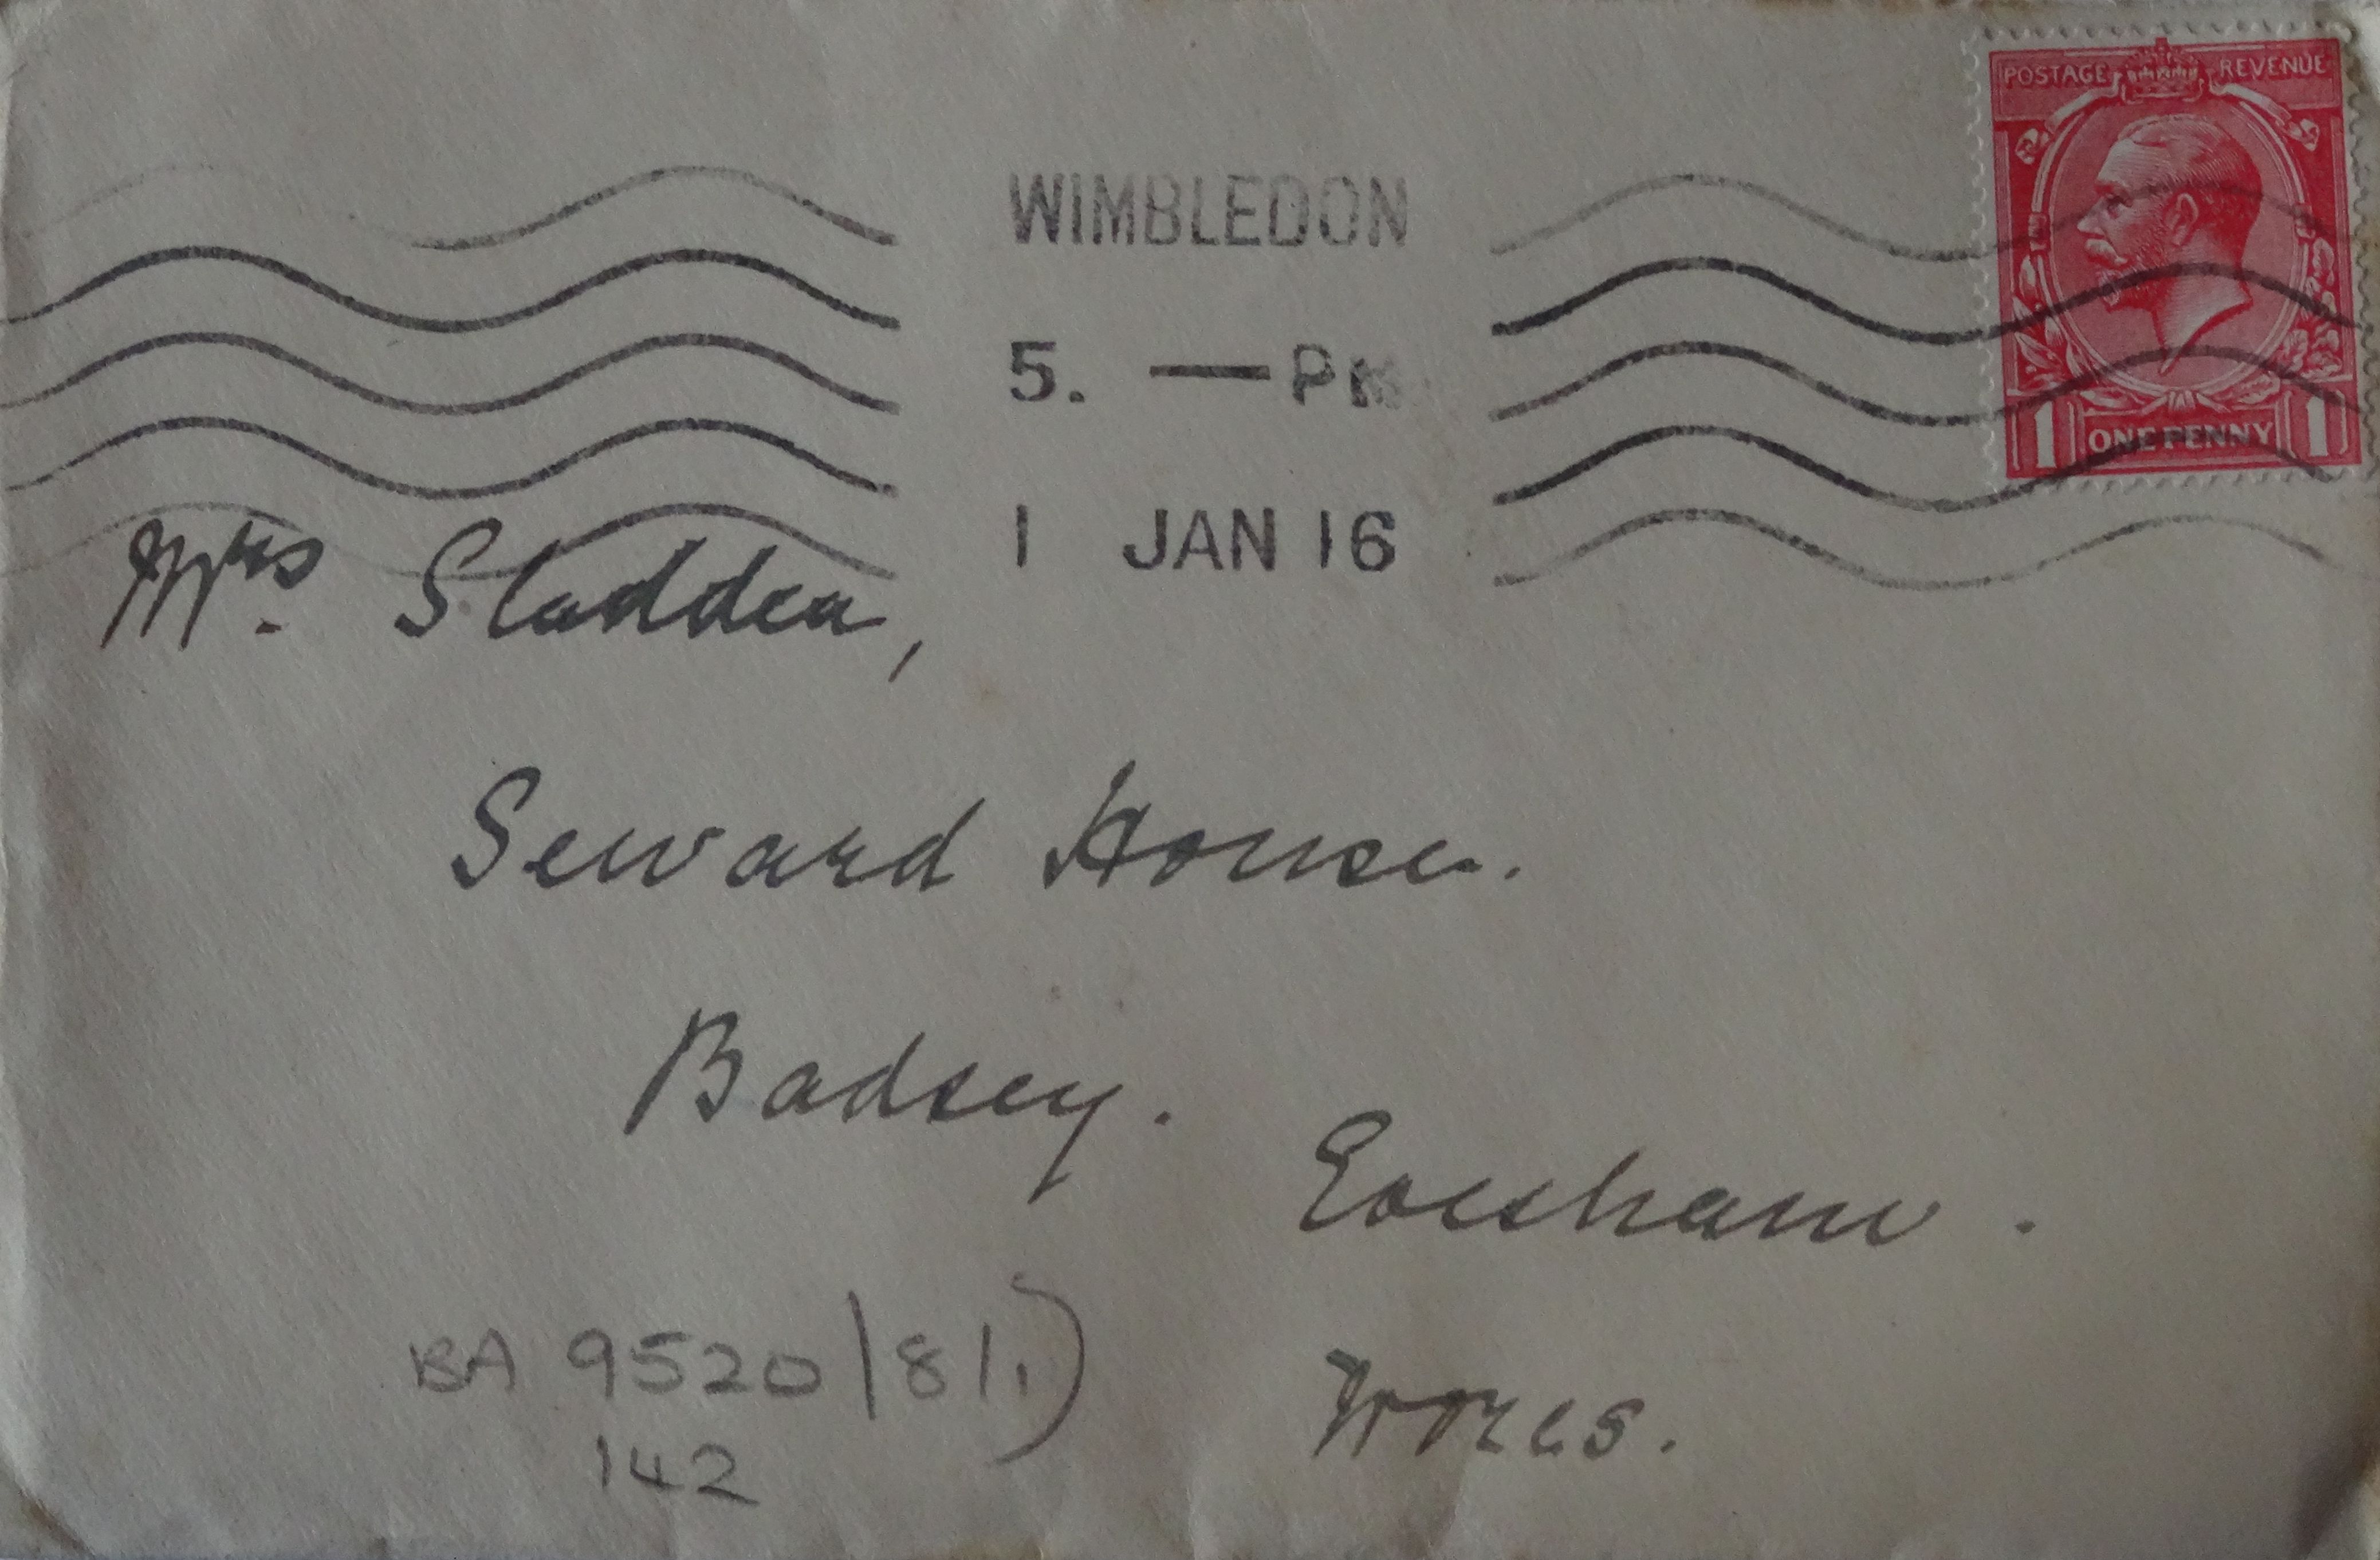 POSTAGE REVENUE
ONE PENNY
1 1
WIMBLEDON
5. — PM
1 JAN 16
Mrs. Sladden,
Seward House.
Badsey.
Evesham.
Worcs.
BA 9520/8/1)
142